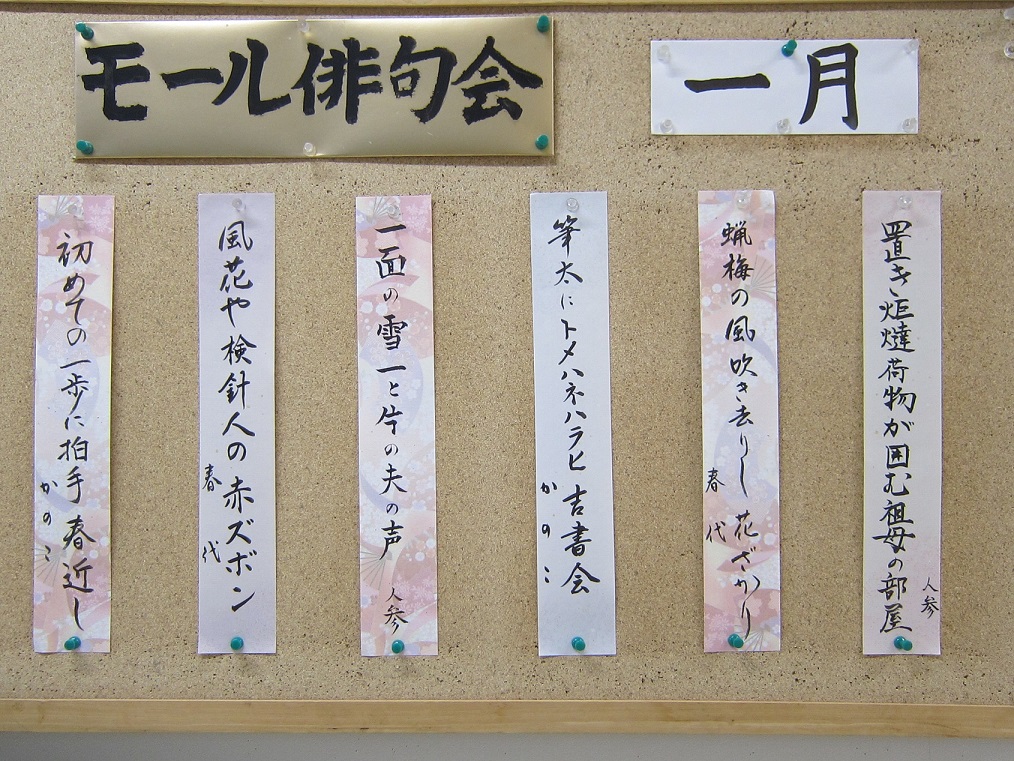 モール俳句会
一月
置き炬燵荷物が囲む祖母の部屋
人参
蝋梅の風吹き去りし花ざかり
春代
筆太にトメハネハラヒ吉書会
かのこ
一面の雪一と片の夫の声
人参
風花や検針人の赤ズボン
春代
初めての一歩に拍手春近し
かのこ